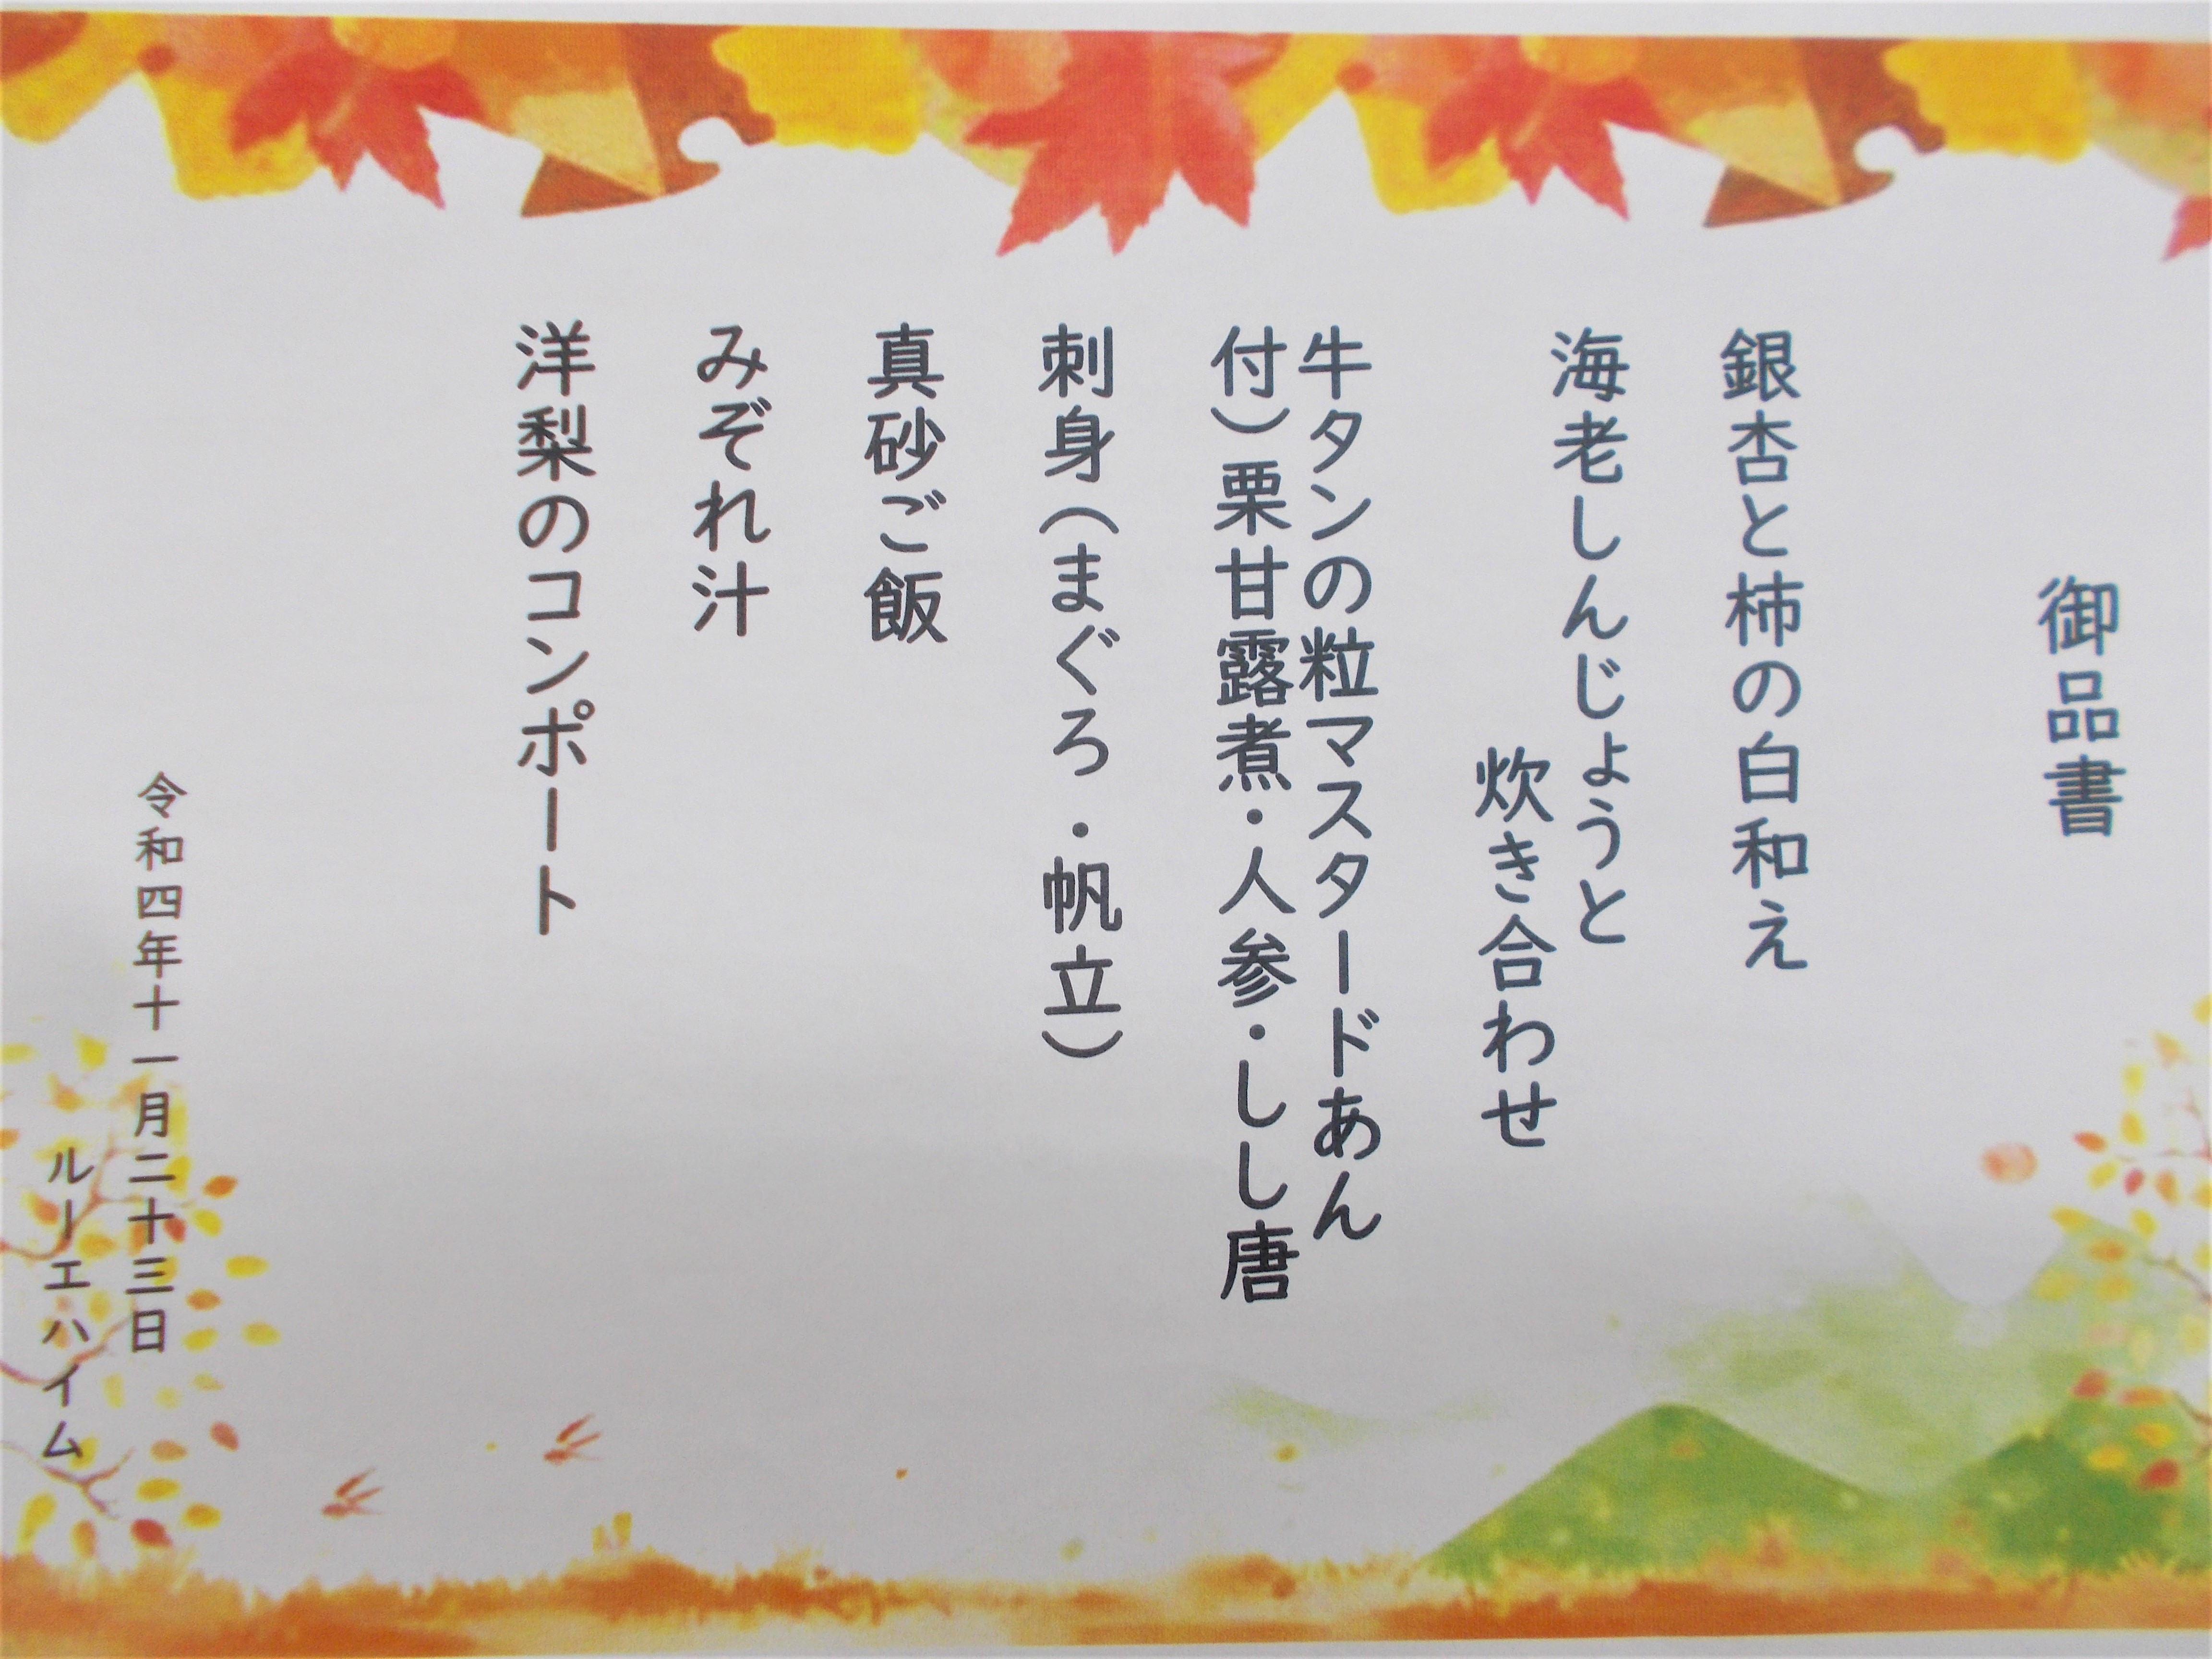 御品書
銀杏と柿の白和え
海老しんじょうと
炊き合わせ
牛タンの粒マスタードあん
付）栗甘露煮・人参・しし唐
刺身（まぐろ・帆立）
真砂ご飯
みぞれ汁
洋梨のコンポート
令和四年十一月二十三日
ルーエハイム